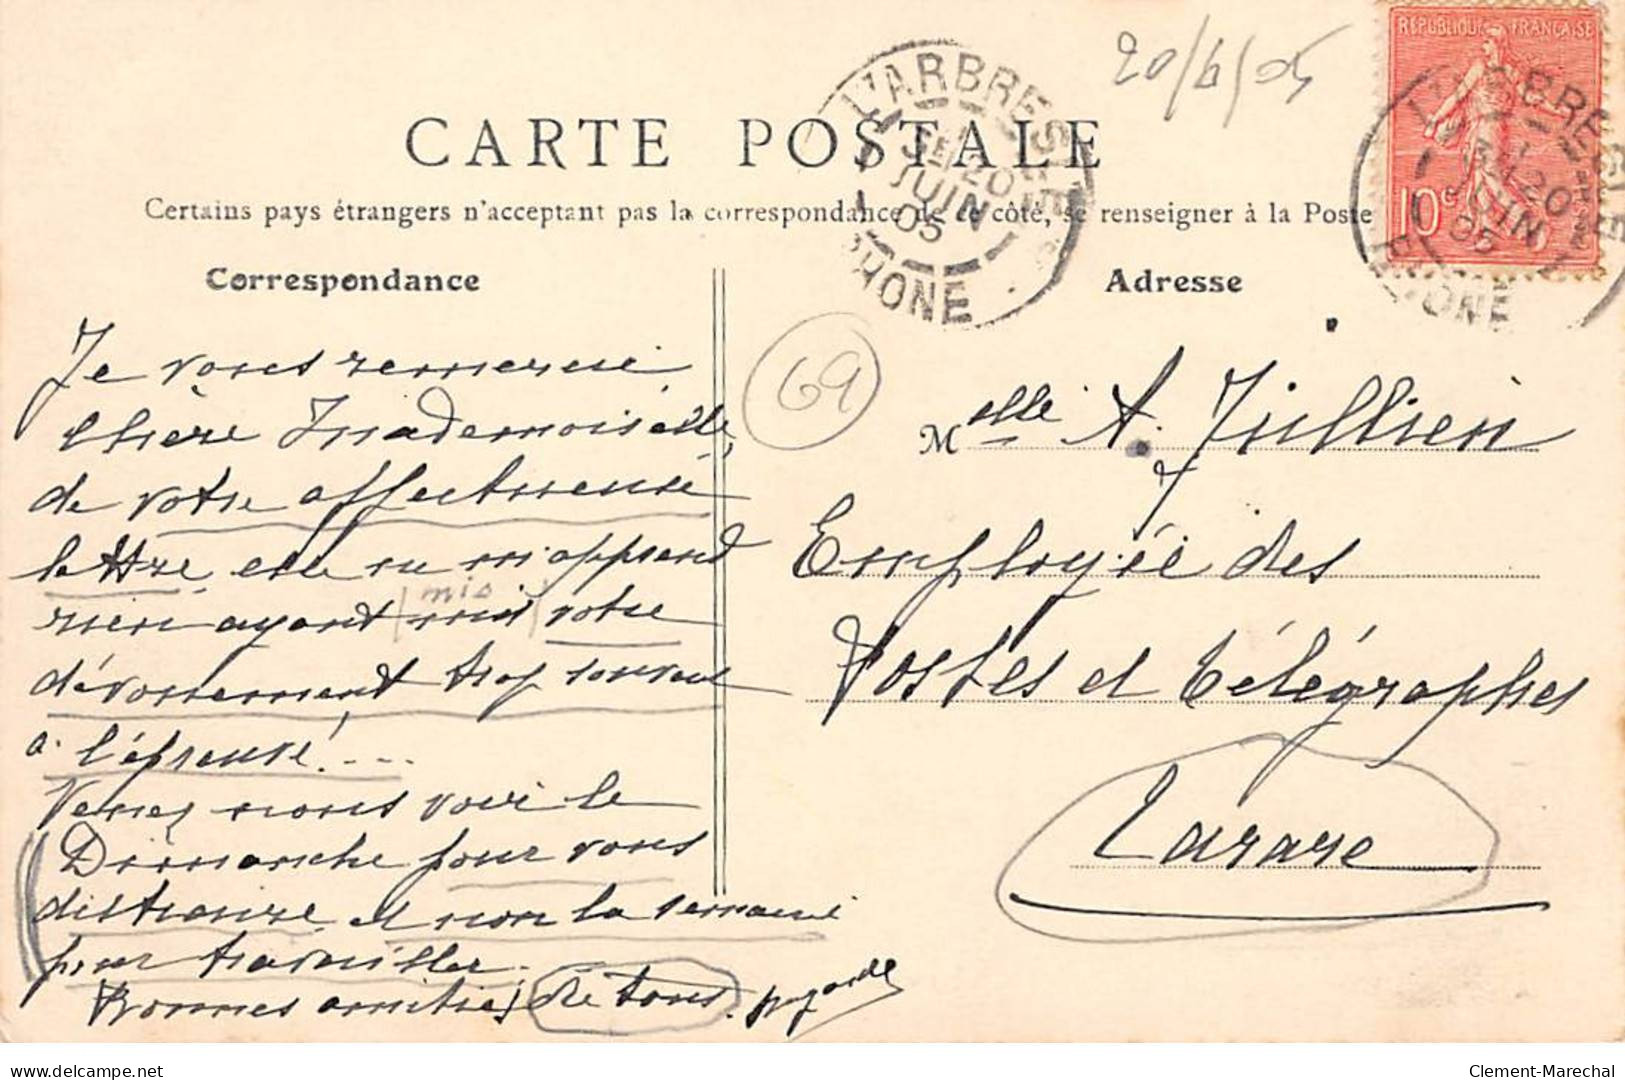 20/6/05
RÉPUBLIQUE FRANÇAISE
10c
L'ARBRESLE
1E 20
JUIN
05
RHONE
L'ARBRESLE
20
JUIN
05
RHONE
CARTE POSTALE
Certains pays étrangers n'acceptant pas la correspondance de ce côté, se renseigner à la Poste
Correspondance
Adresse
69
Je vous remercie
chère Mademoiselle,
de votre affectueuse
lettre, elle ne m'apprend
mis
rien ayant mis votre
dévouement trop souvent
à l'épreuve! ...
Venez nous voir le
Dimanche pour vous
distraire et non la semaine
pour travailler.
Bonnes amitiés de tous.
Melle A. Jullien
Employée des
Postes et télégraphes
Tarare
delcampe.net
Clement-Marechal